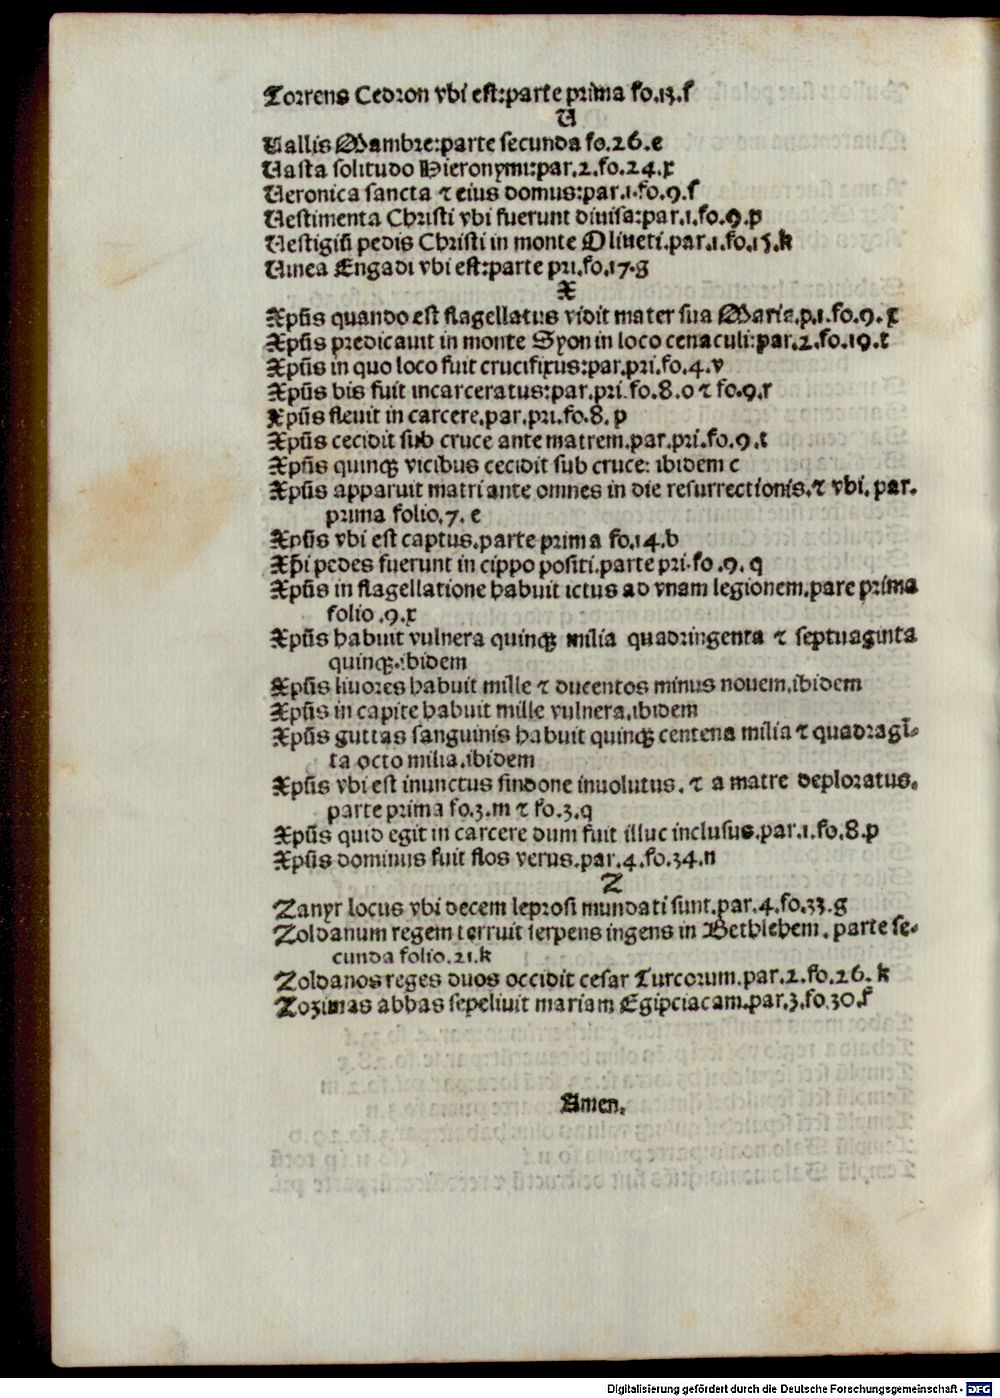 Torrens Cedron vbi est:parte prima fo.13.f
U
Uallis Mambre:parte secunda fo.26.e
Uasta solitudo Hieronymi:par.2.fo.24.x
Ueronica sancta ⁊ eius domus:par.1.fo.9.f
Uestimenta Christi vbi fuerunt diuisa:par.1.fo.9.p
Uestigiũ pedis Christi in monte Oliueti.par.1.fo.15.k
Uinea Engadi vbi est:parte pri.fo.17.g
X
Xpũs quando est flagellatus vidit mater sua Maria.p.1.fo.9.x
Xpũs predicauit in monte Syon in loco cenaculi:par.2.fo.19.t
Xpũs in quo loco fuit crucifixus:par.pri.fo.4.v
Xpũs bis fuit incarceratus:par.pri.fo.8.o ⁊ fo.9.r
Xpũs fleuit in carcere.par.pri.fo.8.p
Xpũs cecidit sub cruce ante matrem.par.pri.fo.9.t
Xpũs quinqꝫ vicibus cecidit sub cruce: ibidem c
Xpũs apparuit matri ante omnes in die resurrectionis.⁊ vbi. par.
prima folio.7. e
Xpũs vbi est captus.parte prima fo.14.b
Xp̃i pedes fuerunt in cippo positi.parte pri.fo.9.q
Xpũs in flagellatione habuit ictus ad vnam legionem.pare prima
folio .9.x
Xpũs habuit vulnera quinqꝫ milia quadringenta ⁊ septuaginta
quinqꝫ.ibidem
Xpũs liuores habuit mille ⁊ ducentos minus nouem.ibidem
Xpũs in capite habuit mille vulnera.ibidem
Xpũs guttas sanguinis habuit quinqꝫ centena milia ⁊ quadragĩ-
ta octo milia.ibidem
Xpũs vbi est inunctus sindone inuolutus. ⁊ a matre deploratus.
parte prima fo.3.m ⁊ fo.3.q
Xpũs quid egit in carcere dum fuit illuc inclusus.par.1.fo.8.p
Xpũs dominus fuit flos verus.par.4.fo.34.n
Z
Zanyr locus vbi decem leprosi mundati sunt.par.4.fo.33.g
Zoldanum regem terruit serpens ingens in Bethlehem. parte se-
cunda folio.21.k
Zoldanos reges duos occidit cesar Turcorum.par.2.fo.26. k
Zozimas abbas sepeliuit mariam Egipciacam.par.3.fo.30.f
Amen.
Digitalisierung gefördert durch die Deutsche Forschungsgemeinschaft - DFG